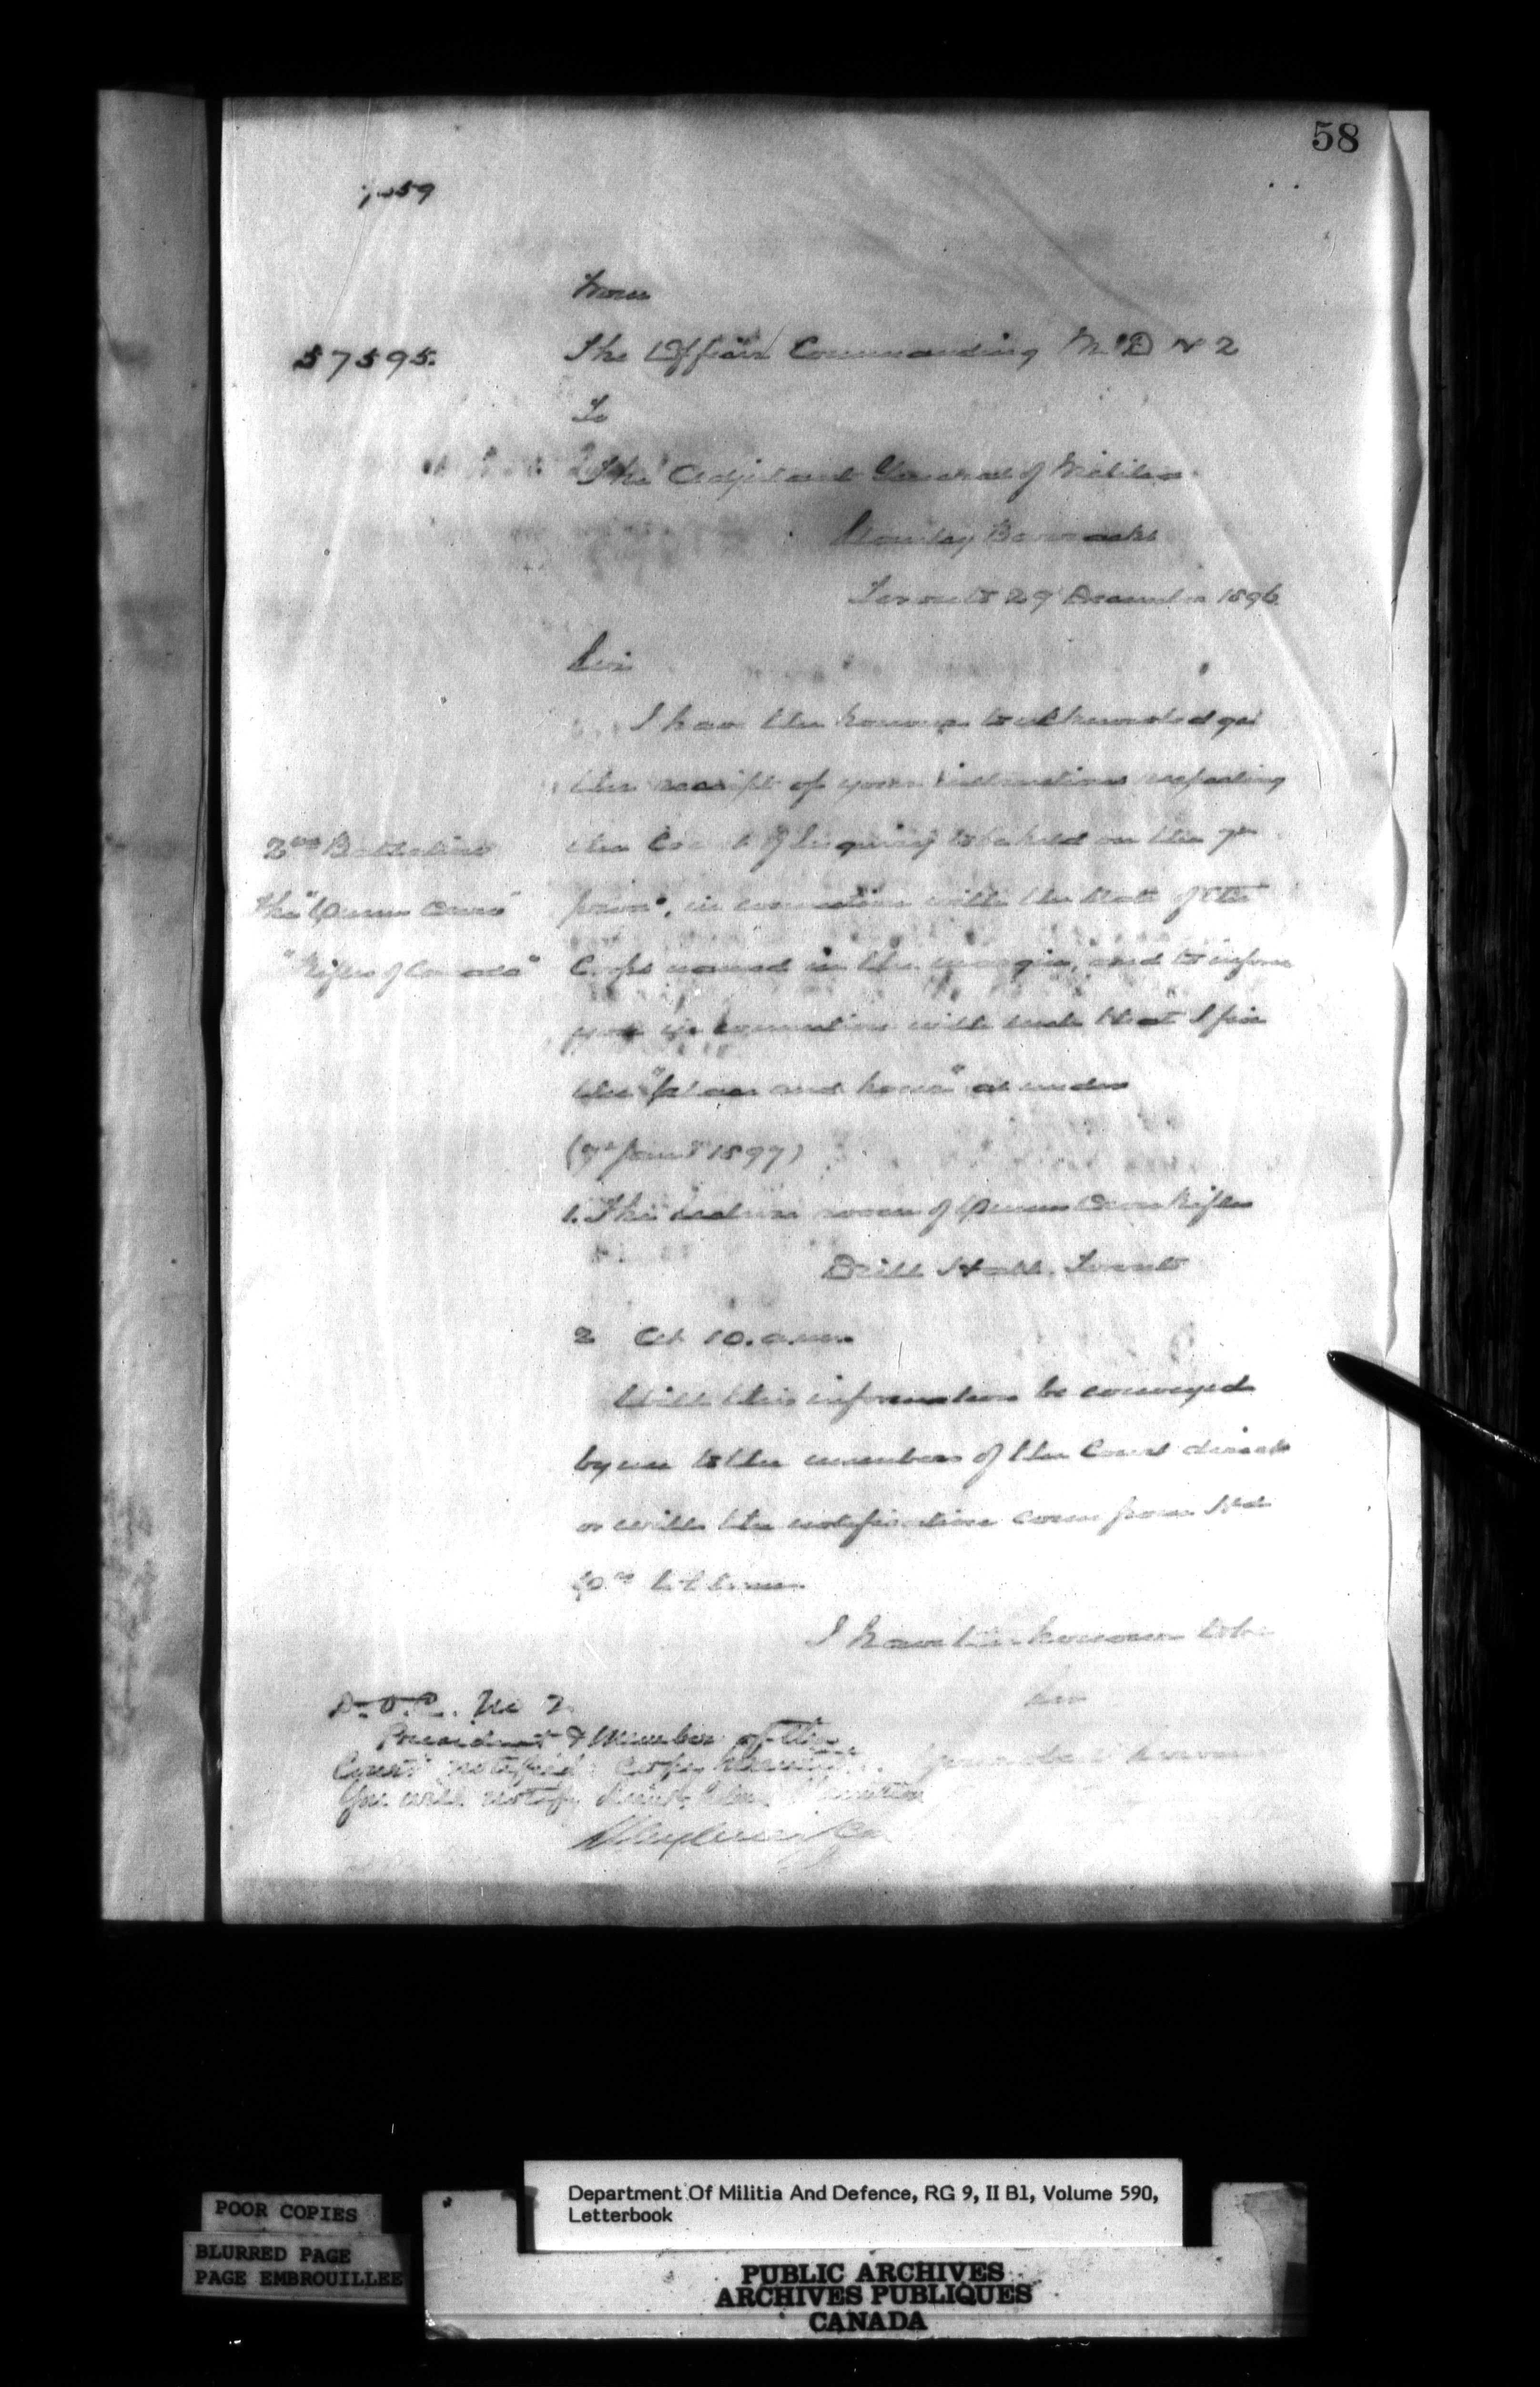 58
From
57595.
The Officer Commanding M.D. No 2
To
The Adjutant General of Militia
Stanley Barracks
Toronto 29 December 1896
Sir
I have the honour to acknowledge
the receipt of your instructions respecting
the Court of Inquiry to be held on the 7th
2nd Battalion
The "Queens Own"
"Rifles of Canada"
in connection with the of the
Corps named in the margin, and to inform
you in connection with such that I fix
the "place and hour" as under
(7th Jany 1897)
1. The lecture room of Queens Own Rifles
Drill Hall, Toronto
2 At 10. a.m.
Will this information be conveyed
by me to the members of the Court direct
or will the notification come from Hd
Qrs to them.
I have the honour to be
Sir
D.O.C. No 2.
President & Member of the
Court notified.
You will notify
Department Of Militia And Defence, RG 9, II B1, Volume 590,
Letterbook
POOR COPIES
BLURRED PAGE
PAGE EMBROUILLEE
PUBLIC ARCHIVES
ARCHIVES PUBLIQUES
CANADA